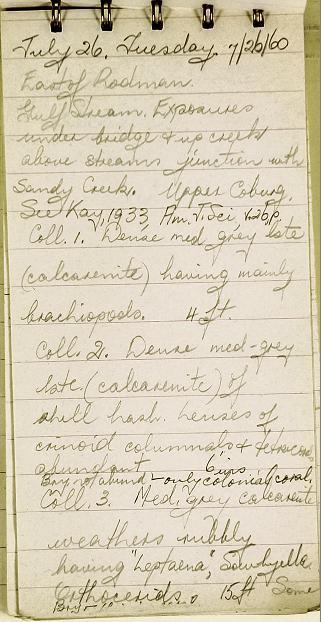 July 26, Tuesday. 7/26/60
East of Rodman.
Gulf Stream. Exposures
under bridge & up creek
above streams junction with
Sandy Creek. Upper Coburg.
See Kay, 1933 Am. J. Sci
Coll. 1. Dense med grey late
(calcarenite) having mainly
brachiopods. 4 ft.
Coll. 2. Dense med-grey
late. (calcarenite) of
shell hash. Lenses of
crinoid columnals &
abundant 6 ins
Bry. not abund – only colonial coral.
Coll. 3. Med. grey calcarenite
weathers rubbly
having "Leptaena", Sowbyella
Orthocerids. 15 ft Some
Bry